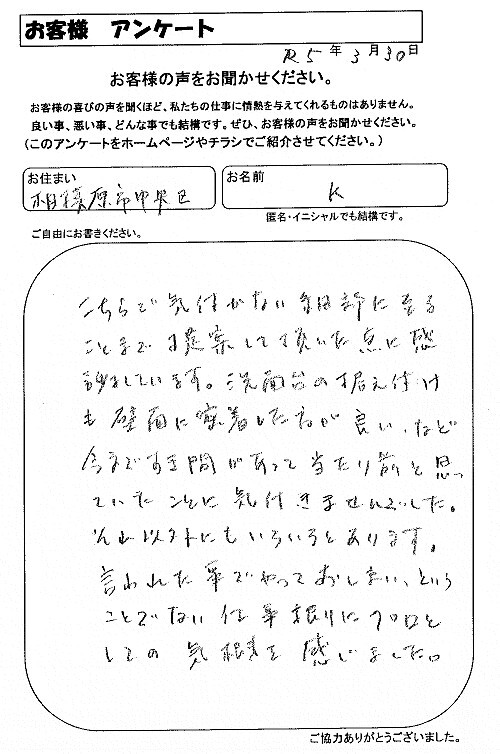 お客様 アンケート
R5年3月30日
お客様の声をお聞かせください。
お客様の喜びの声を聞くほど、私たちの仕事に情熱を与えてくれるものはありません。
良い事、悪い事、どんな事でも結構です。ぜひ、お客様の声をお聞かせください。
(このアンケートをホームページやチラシでご紹介させてください。)
お住まい
相模原市中央区
お名前
K
匿名・イニシャルでも結構です。
ご自由にお書きください。
こちらで気付かない細部に至る
ことまで提案して頂いた点に感
謝しています。洗面台の据え付け
も壁面に密着した方が良い、など
今まですき間があって当たり前と思っ
ていたことに気付きませんでした。
それ以外にもいろいろとあります。
言われた事でやっておしまい、という
ことでない仕事振りにプロと
しての気概を感じました。
ご協力ありがとうございました。